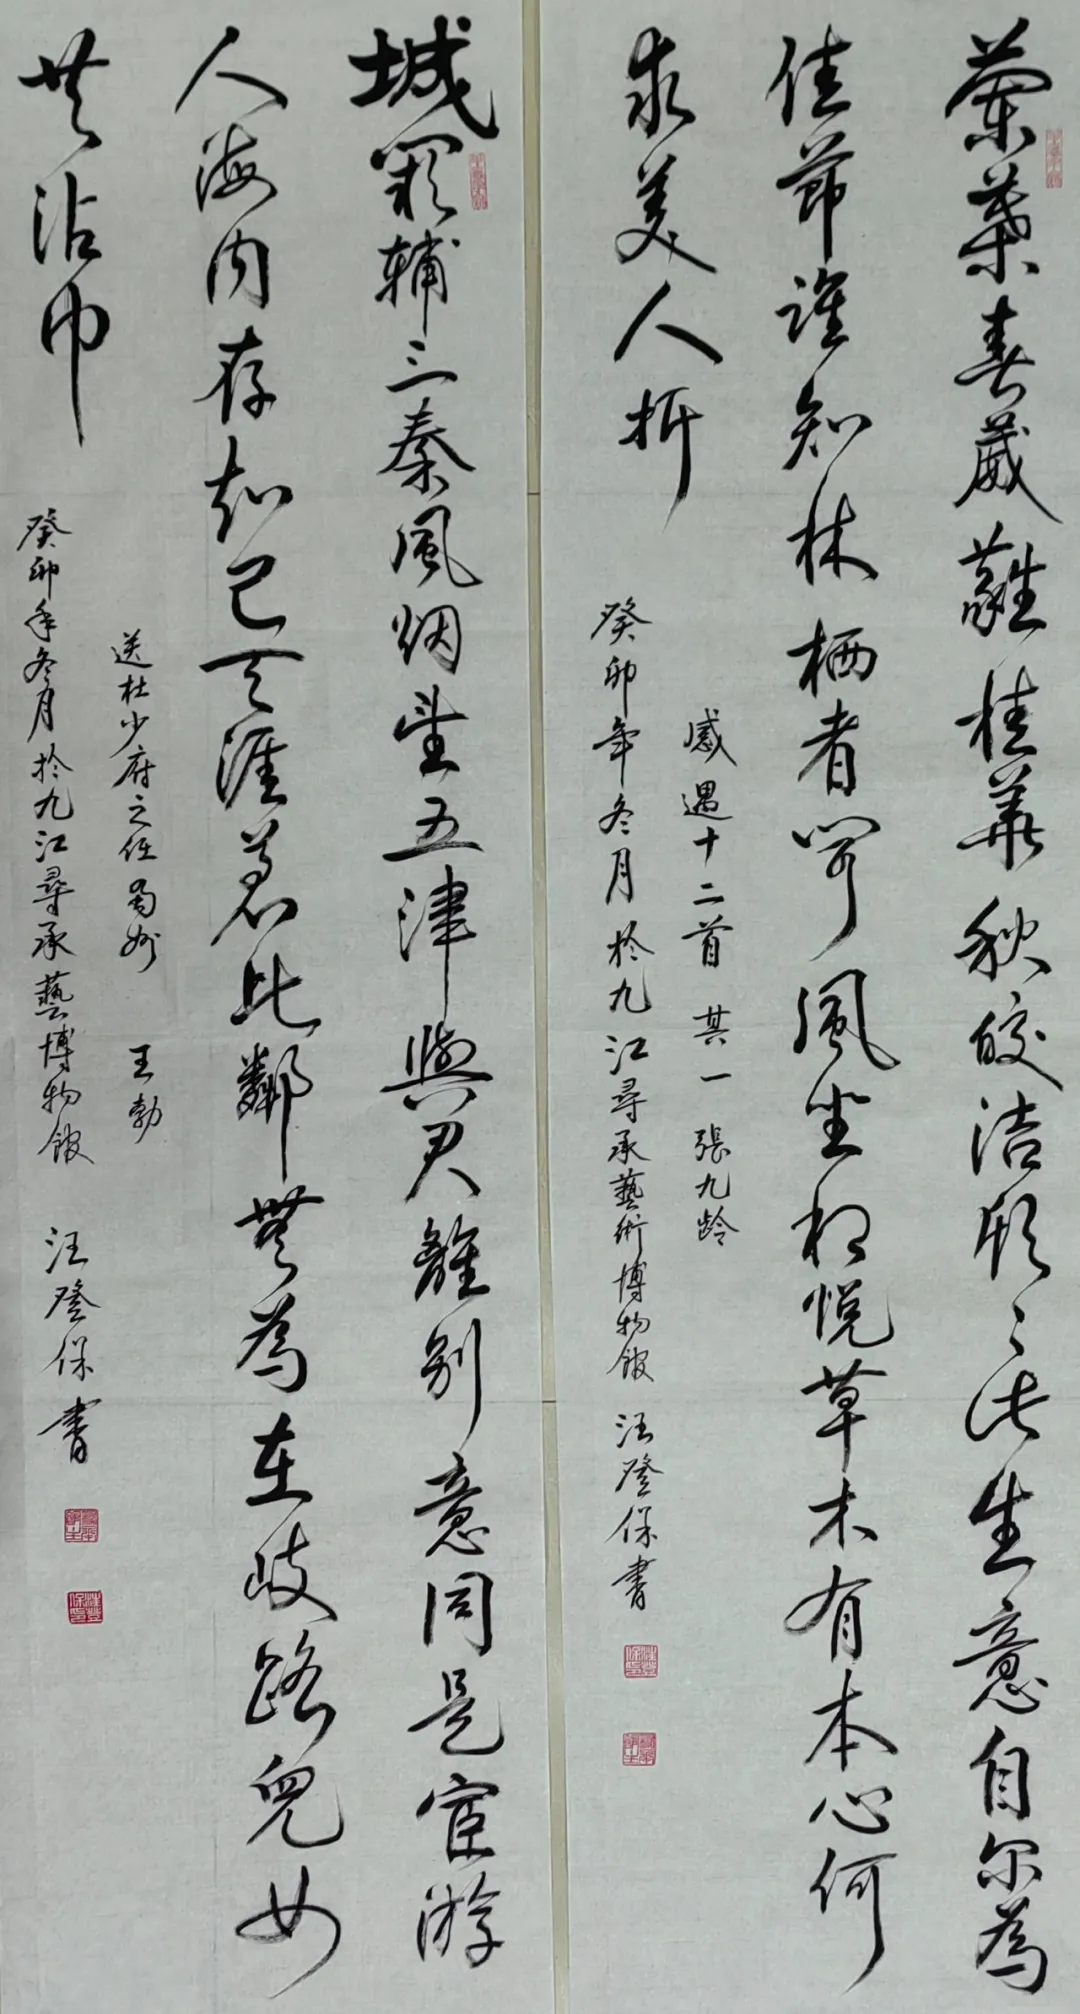 蘭葉春葳蕤桂華秋皎洁欣〻此生意自尔為
佳節誰知林栖者闻風坐相悦草木有本心何
求美人折
感遇十二首 其一 張九龄
癸卯年冬月於九江尋承藝術博物館 汪登保書
城闕輔三秦風烟望五津與君離别意同是宦游
人海内存知己天涯若比鄰無為在歧路兒女
共沾巾
送杜少府之任蜀州 王勃
癸卯年冬月於九江尋承藝博物館 汪登保書